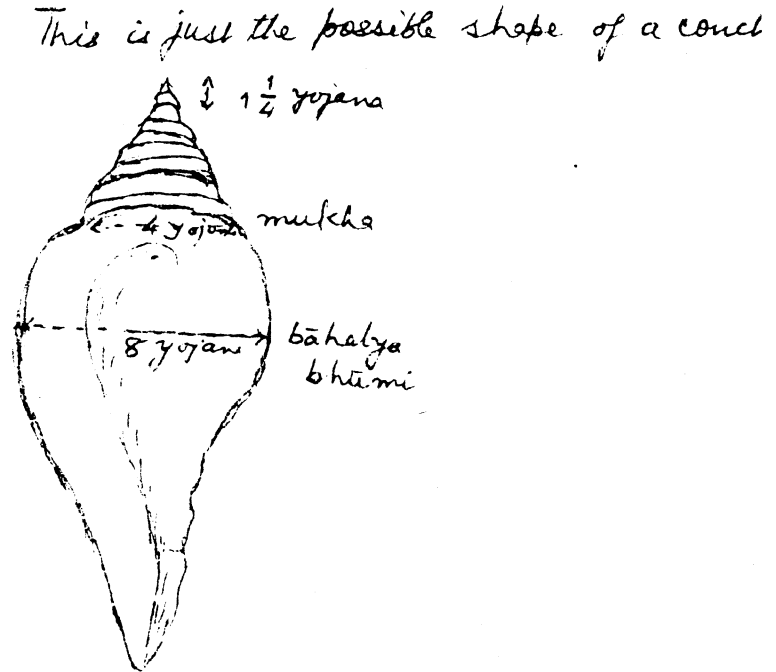 This is just the possible shape of a conch
1 1/4 yojana
mukha
4 yojana
8 yojana
bāhalya
bhūmi